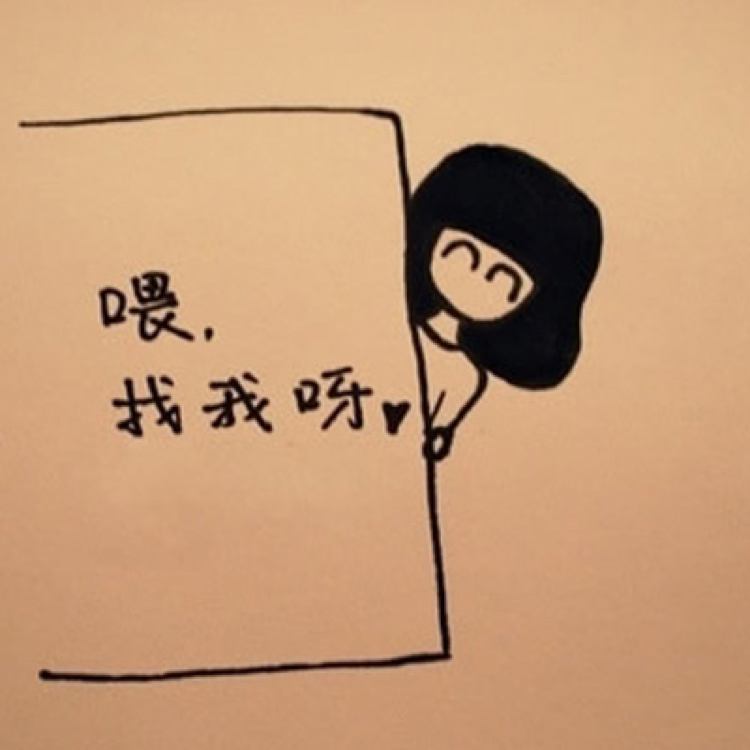 喂,
找我呀♥